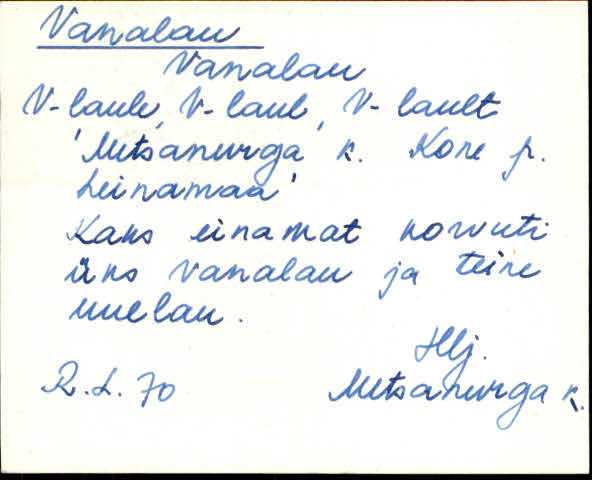 Vanalau
Vanalau
V-laule, V-laul, V-lault
'Metsanurga k. Kore p.
heinamaa'
Kaks einamat korvuti
üks vanalau ja teine
uuelau.
Hlj.
R.L. 70 Metsanurga k.